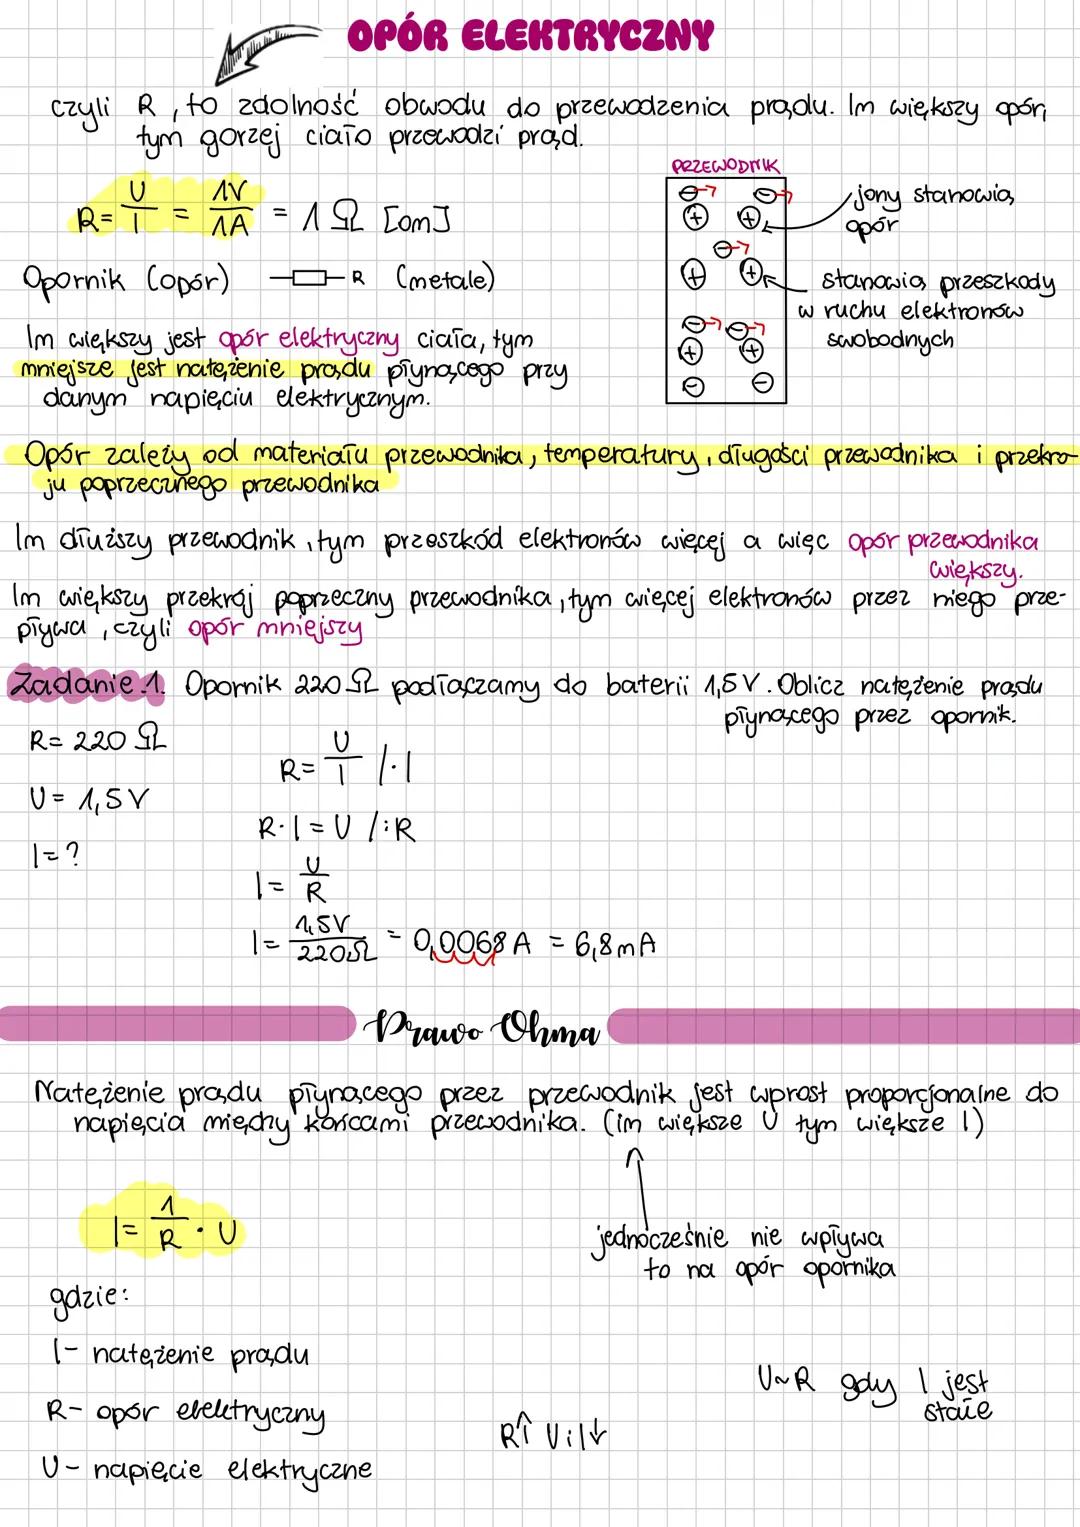 OPÓR ELEKTRYCZNY
czyli R, to zdolność obwodu do przewodzenia prądu. Im większy opór,
tym gorzej ciało przewodzi prąd.
R = U/I = 1V/1A = 1 Ω [om]
Opornik (opór) R (metale)
PRZEWODNIK
jony stanowią
opór
stanowią przeszkody
w ruchu elektronów
swobodnych
Im większy jest opór elektryczny ciała, tym
mniejsze jest natężenie prądu płynącego przy
danym napięciu elektrycznym.
Opór zależy od materiału przewodnika, temperatury, długości przewodnika i przekro-
ju poprzecznego przewodnika
Im dłuższy przewodnik, tym przeszkód elektronów więcej a więc opór przewodnika
większy.
Im większy przekrój poprzeczny przewodnika, tym więcej elektronów przez niego prze-
pływa, czyli opór mniejszy
Zadanie 1. Opornik 220 Ω podłączamy do baterii 1,5V. Oblicz natężenie prądu
płynącego przez opornik.
R = 220 Ω
U = 1,5V
I = ?
R = U/I /·I
R·I = U /:R
I = U/R
I = 1,5V/220Ω = 0,0068 A = 6,8 mA
Prawo Ohma
Natężenie prądu płynącego przez przewodnik jest wprost proporcjonalne do
napięcia między końcami przewodnika. (im większe U tym większe I)
jednocześnie nie wpływa
to na opór opornika
I = 1/R · U
gdzie:
I - natężenie prądu
R - opór elektryczny
U - napięcie elektryczne
R↑ U i I↓
U~R gdy I jest
stałe